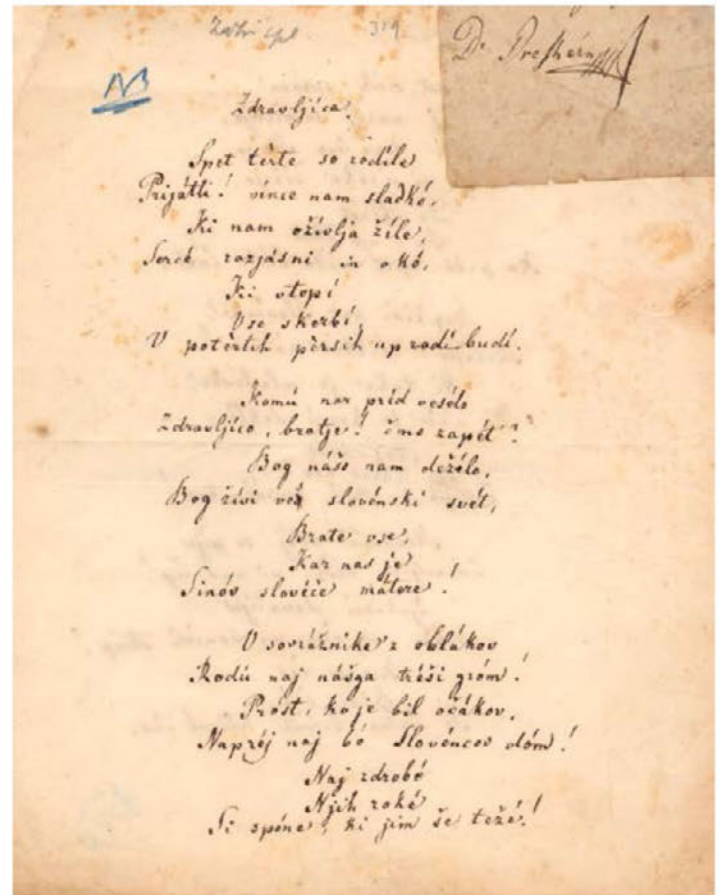 319
Dr Preſhérn
NB
Zdravljíca.
Spet tèrte so rodíle
Prijátli! vínce nam sladkó,
Ki nam ožívlja žíle,
Sercé razjásni in okó,
Ki vtopí
Vse skerbí,
V potèrtih pèrsih up radí budí.
Komú nar préd vesélo
Zdravljíco, bratje! čmo zapét'?
Bog nášo nam dežélo,
Bog žívi ves slovénski svét,
Brate vse,
Kar nas je
Sinóv slovéče mátere!
V sovrážnike z oblákov
Rodú naj nášga tréši gróm!
Prost, ko je bil očákov,
Naprèj naj bó Slovéncov dóm!
Naj zdrobé
Njih roké
Si spóne, ki jim še težé!